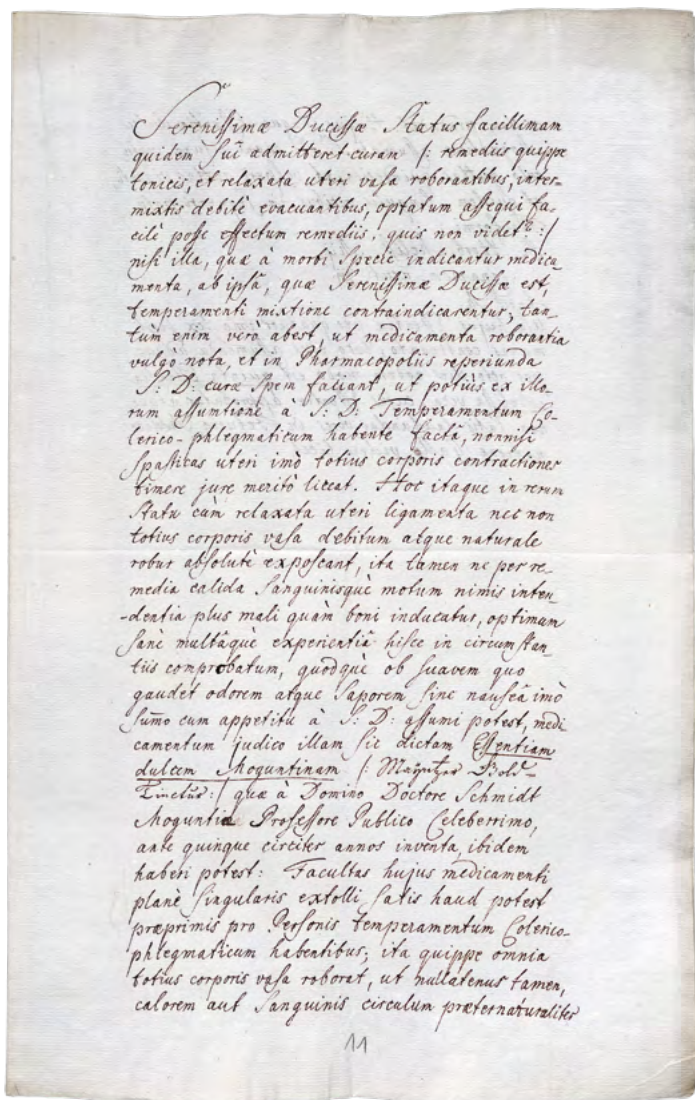 Serenissimæ Ducissæ Status facillimam
quidem sui admitteret curam /: remediis quippe
tonicis, et relaxata uteri vasa roborantibus, inter-
mixtis debitè evacuantibus, optatum assequi fa-
cilè posse effectum remediis, quis non videt :/
nisi illa, quæ à morbi Specie indicantur medica-
menta, ab ipsâ, quæ Serenissimæ Ducissæ est,
temperamenti mixtione contraindicarentur; tan-
tùm enim verò abest, ut medicamenta roborantia
vulgò nota, et in Pharmacopoliis reperiunda
S: D: curæ Spem faciant, ut potiùs ex illo-
rum assumtione à S: D: Temperamentum Co-
lerico-phlegmaticum habente factâ, nonnisi
Spasticas uteri imò totius corporis contractiones
timere jure meritò liceat. Hoc itaque in rerum
Statu cùm relaxata uteri ligamenta nec non
totius corporis vasa debitum atque naturale
robur absolutè exposcant, ita tamen ne per re-
media calida Sanguinisquè motum nimis inten-
-dentia plus mali quàm boni inducatur, optimum
Sanè multâquè experientiâ hisce in circumstan-
tiis comprobatum, quodquè ob suavem quo
gaudet odorem atque Saporem sine nauseâ imò
sum̄o cum appetitu à S: D: assumi potest, medi
camentum judico illam sic dictam Essentiam
dulcem Moguntinam /: Mayntzer Gold-
Tinctur :/ quæ à Domino Doctore Schmidt
Moguntiæ Professore Publico Celeberrimo,
ante quinque circiter annos inventa, ibidem
haberi potest: Facultas hujus medicamenti
planè Singularis extolli satis haud potest
præprimis pro Personis temperamentum Colerico-
phlegmaticum habentibus; ita quippe omnia
totius corporis vasa roborat, ut nullatenus tamen,
calorem aut Sanguinis circulum præternaturaliter
11